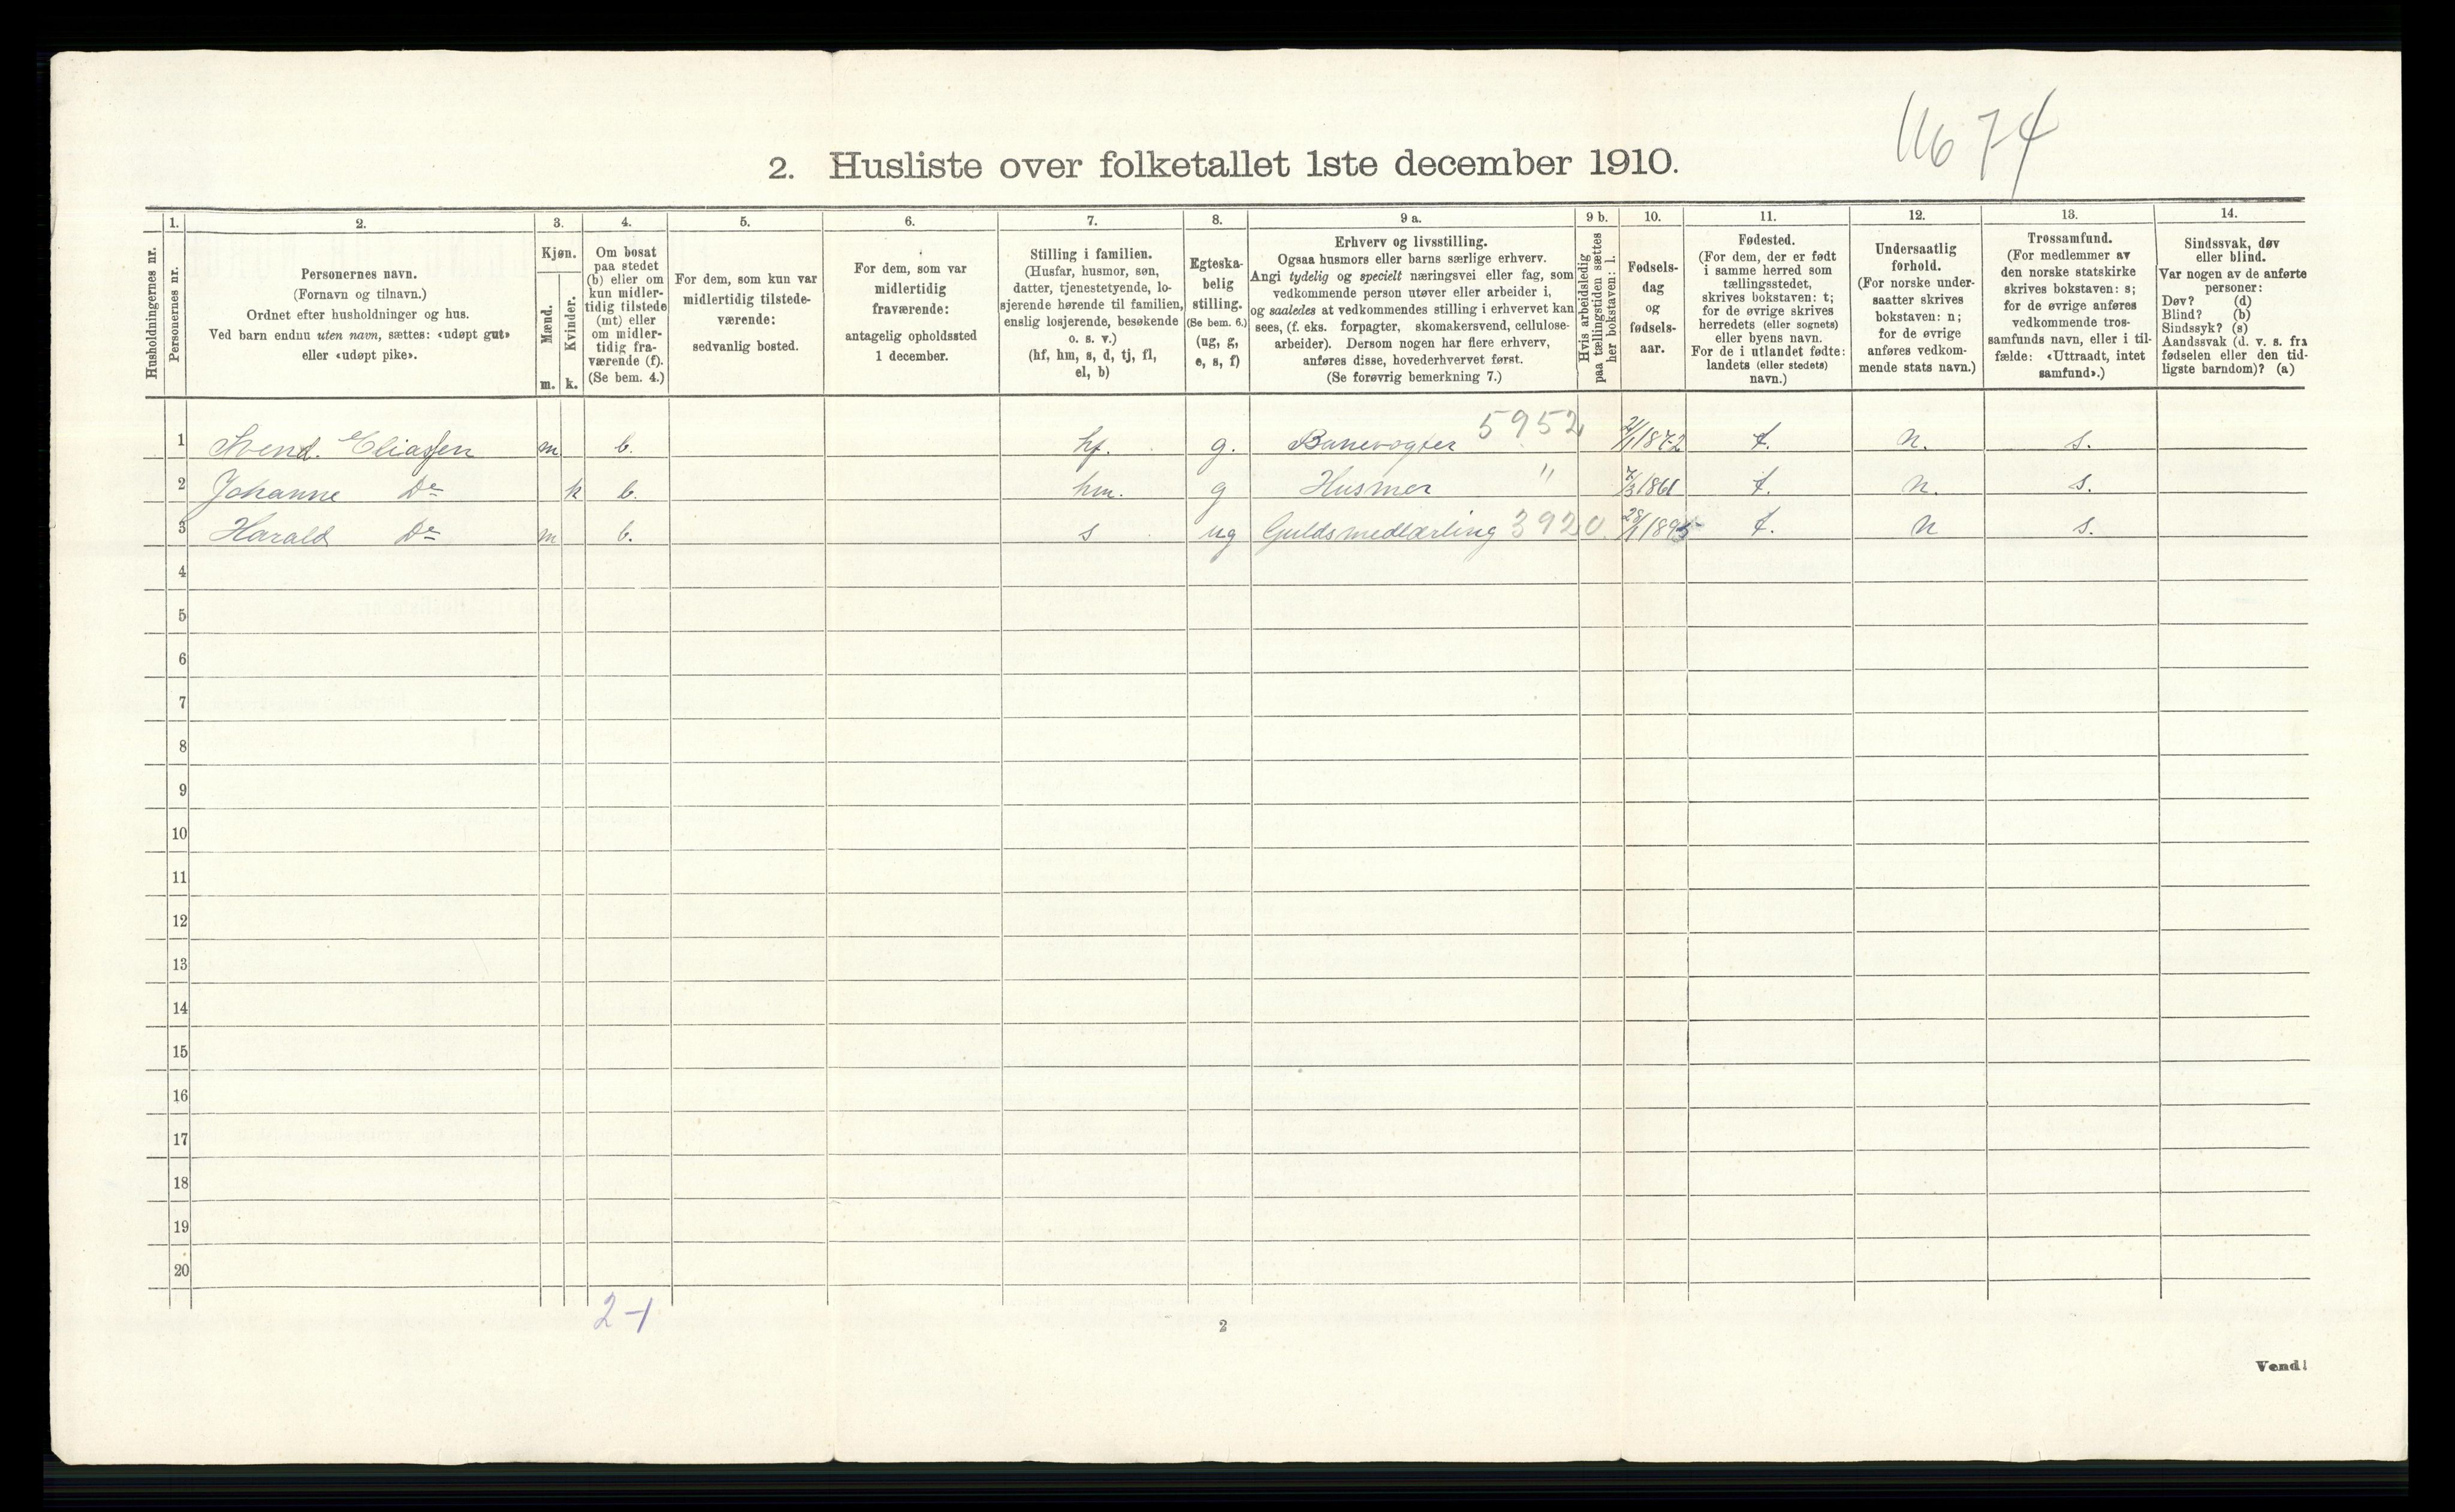 1674
2. Husliste over folketallet 1ste december 1910.
Husholdningernes nr.
1.
Personernes nr.
2.
Personernes navn.
(Fornavn og tilnavn.)
Ordnet efter husholdninger og hus.
Ved barn endnu uten navn, sættes: «udøpt gut»
eller «udøpt pike».
3.
Kjøn.
Mænd.
m.
Kvinder.
k.
4.
Om bosat
paa stedet
(b) eller om
kun midler-
tidig tilstede
(mt) eller
om midler-
tidig fra-
værende (f).
(Se bem. 4.)
5.
For dem, som kun var
midlertidig tilstede-
værende:
sedvanlig bosted.
6.
For dem, som var
midlertidig
fraværende:
antagelig opholdssted
1 december.
7.
Stilling i familien.
(Husfar, husmor, søn,
datter, tjenestetyende, lo-
sjerende hørende til familien,
enslig losjerende, besøkende
o. s. v.)
(hf, hm, s, d, tj, fl,
el, b)
8.
Egteska-
belig
stilling.
(Se bem. 6.)
(ug, g,
e, s, f)
9 a.
Erhverv og livsstilling.
Ogsaa husmors eller barns særlige erhverv.
Angi tydelig og specielt næringsvei eller fag, som
vedkommende person utøver eller arbeider i,
og saaledes at vedkommendes stilling i erhvervet kan
sees, (f. eks. forpagter, skomakersvend, cellulose-
arbeider). Dersom nogen har flere erhverv,
anføres disse, hovederhvervet først.
(Se forøvrig bemerkning 7.)
9 b.
Hvis arbeidsledig
paa tællingstiden sættes
her bokstaven: l.
10.
Fødsels-
dag
og
fødsels-
aar.
11.
Fødested.
(For dem, der er født
i samme herred som
tællingsstedet,
skrives bokstaven: t;
for de øvrige skrives
herredets (eller sognets)
eller byens navn.
For de i utlandet fødte:
landets (eller stedets)
navn.)
12.
Undersaatlig
forhold.
(For norske under-
saatter skrives
bokstaven: n;
for de øvrige
anføres vedkom-
mende stats navn.)
13.
Trossamfund.
(For medlemmer av
den norske statskirke
skrives bokstaven: s;
for de øvrige anføres
vedkommende tros-
samfunds navn, eller i til-
fælde: «Uttraadt, intet
samfund».)
14.
Sindssvak, døv
eller blind.
Var nogen av de anførte
personer:
Døv? (d)
Blind? (b)
Sindssyk? (s)
Aandssvak (d. v. s. fra
fødselen eller den tid-
ligste barndom)? (a)
1 Svend. Eliassen m b. hf. g. Banevogter 5952 2/1 1872 t. n. s.
2 Johanne Do k b. hm. g Husmor " 7/3 1861 t. n. s.
3 Harald Do m b. s ug Guldsmedlærling 3920. 28/1 1895 t. n s.
4
5
6
7
8
9
10
11
12
13
14
15
16
17
18
19
20
2-1
2
Vend!